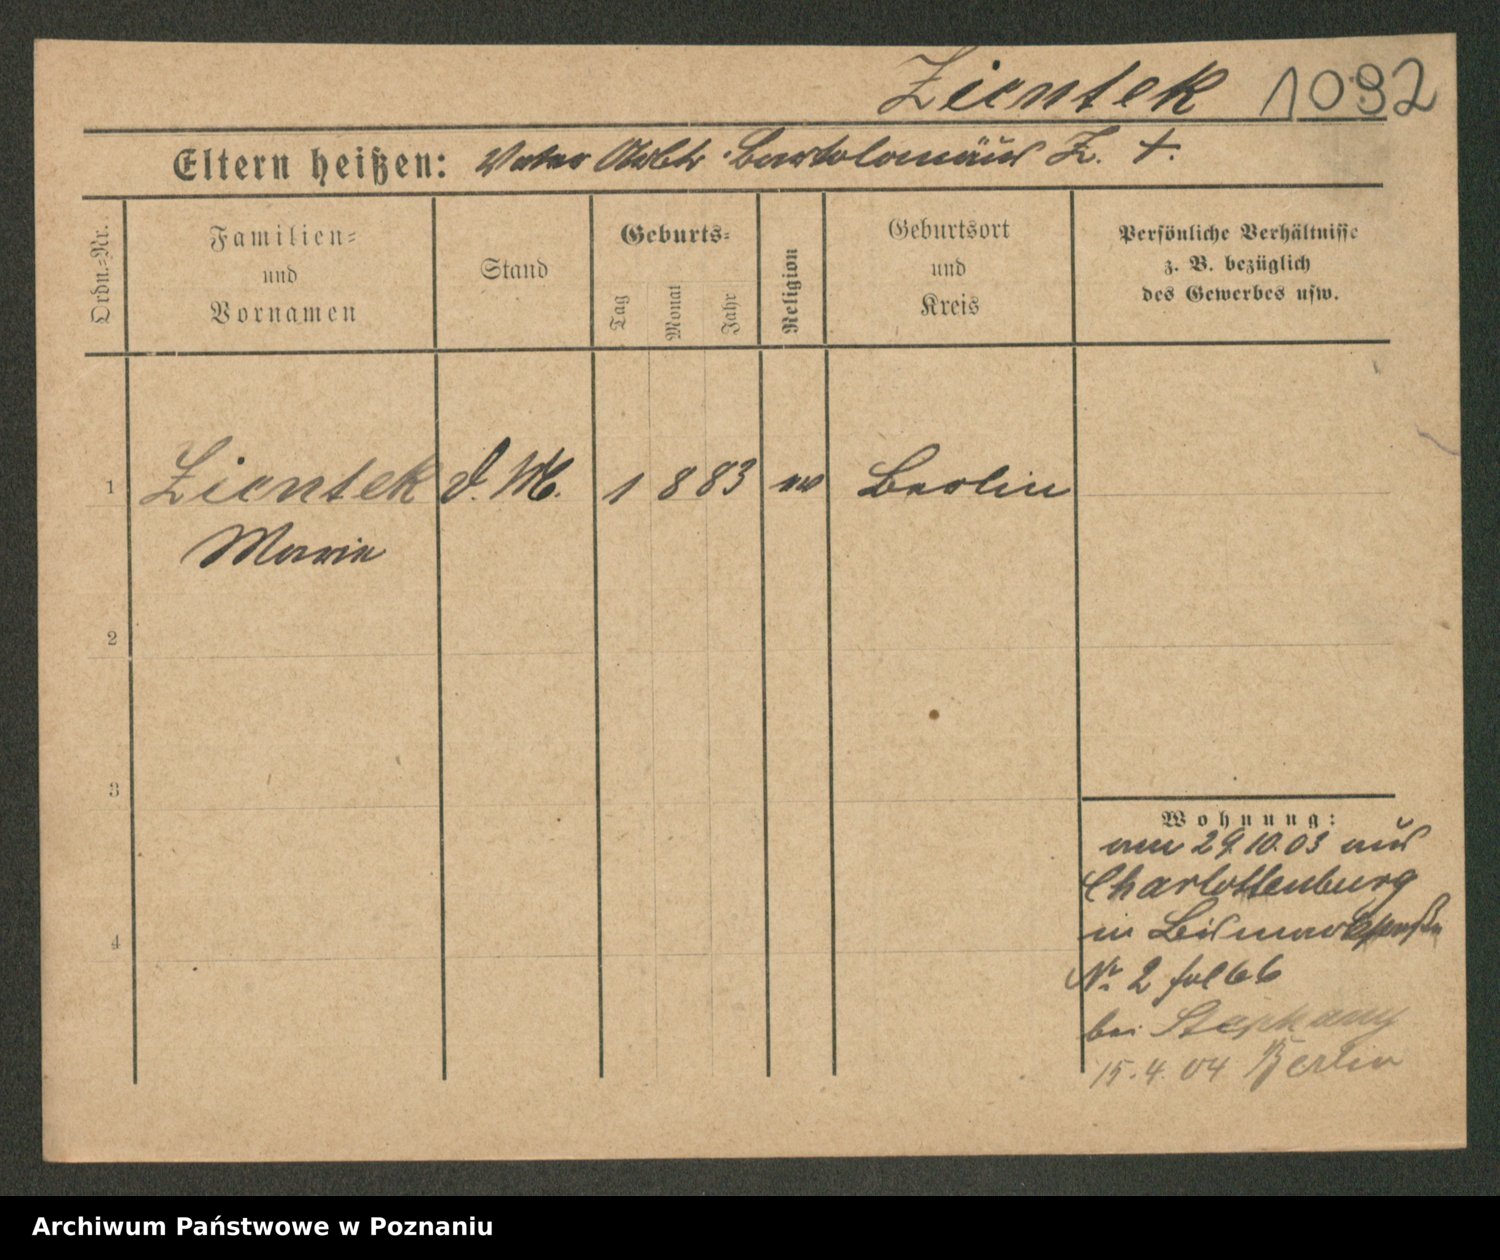 Zientek 1092
Eltern heißen: Vater Arbtr Bartolomäus Z. †.
Ordn.=Nr.
Familien=
und
Vornamen
Stand
Geburts=
Tag
Monat
Jahr
Religion
Geburtsort
und
Kreis
Persönliche Verhältnisse
z. B. bezüglich
des Gewerbes usw.
1 Zientek d. M. 1 8 83 ev Berlin
Marie
2
3
4
Wohnung:
am 29.10.03 aus
Charlottenburg
in Bismarckstraße
Nr. 2 fol 66
bei Stephany
15.4.04 Berlin
Archiwum Państwowe w Poznaniu